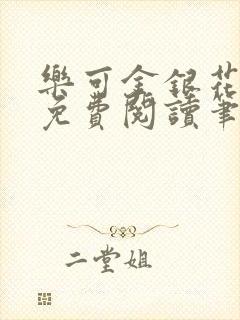 樂可金銀花
免費閱讀筆
二堂姐